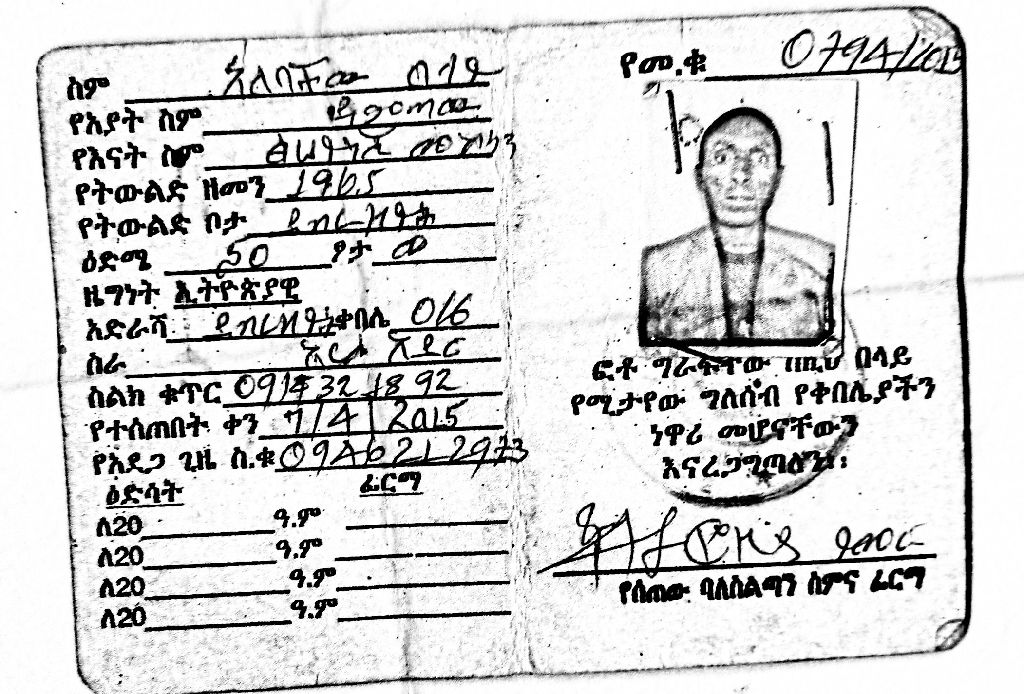 ስም አለባቸው በላይ
የአያት ስም
የእናት ስም
የትውልድ ዘመን 1965
የትውልድ ቦታ
ዕድሜ 50 ፆታ ወ
ዜግነት ኢትዮጵያዊ
አድራሻ ቀበሌ 016
ስራ አርሶ አደር
ስልክ ቁጥር 0914321892
የተሰጠበት ቀን 7/4/2015
የአደጋ ጊዜ ስ.ቁ 0946212973
ዕድሳት ፊርማ
ለ20 ዓ.ም
ለ20 ዓ.ም
ለ20 ዓ.ም
ለ20 ዓ.ም
የመ.ቁ 0794/2015
ፎቶ ግራፋቸው ከዚህ በላይ
የሚታየው ግለሰብ የቀበሌያችን
ነዋሪ መሆናቸውን
እናረጋግጣለን፡፡
የሰጠው ባለስልጣን ስምና ፊርማ